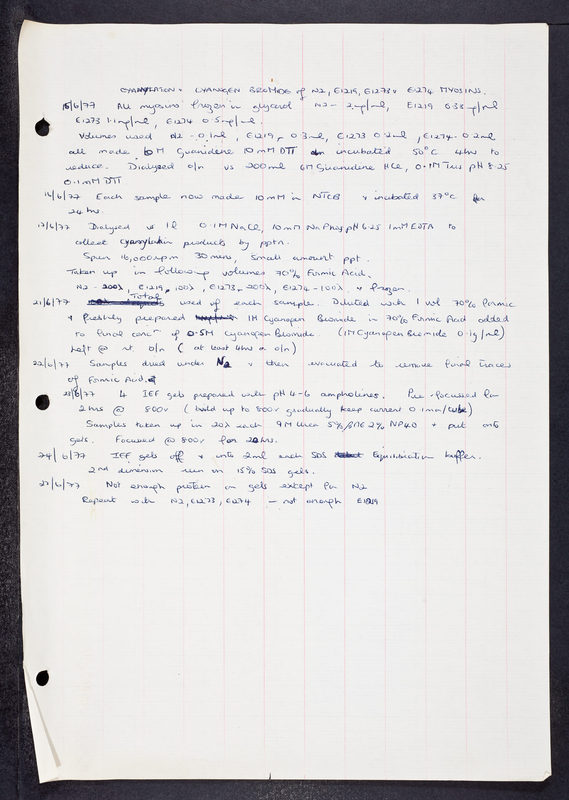 CYANYLATION + CYANOGEN BROMIDE of N2, E1219, E1273 + E1274 MYOSINS.
15/6/77 All myosins frozen in glycerol N2 - 2mg/ml, E1219 0.33mg/ml
E1273 1.1mg/ml, E1274 0.5mg/ml.
Volumes used N2 - 0.1ml, E1219, 0.3ml, E1273 0.2ml, E1274 - 0.2ml
all made 6M Guanidine 10mM DTT incubated 50°C 4hrs to
reduce. Dialysed o/n vs 200ml 6M Guanidine HCl, 0.1M Tris pH 8.25
0.1mM DTT.
16/6/77 Each sample now made 10mM in NTCB + incubated 37°C for
24 hrs.
17/6/77 Dialysed vs 1l 0.1M NaCl, 10mM NaPhos pH 6.25 1mM EDTA to
collect cyanylation products by pptn.
Spun 16,000rpm 30 mins, Small amount ppt.
Taken up in following volumes 70% Formic Acid.
N2 - 200λ, E1219, 100λ, E1273, 200λ, E1274 - 100λ + frozen.
21/6/77 Total used of each sample. Diluted with 1 vol 70% Formic
+ freshly prepared 1M Cyanogen Bromide in 70% Formic Acid added
to final concn of 0.5M Cyanogen Bromide. (1M Cyanogen Bromide 0.1g/ml)
Left @ rt o/n (at least 4hrs or o/n)
22/6/77 Samples dried under N2 + then evacuated to remove final traces
of Formic Acid.
23/6/77 4 IEF gels prepared with pH 4-6 ampholines. Pre-focussed for
2hrs @ 800v (build up to 800v gradually keep current 0.1ma/tube)
Samples taken up in 20λ each 9M Urea 5% βME 2% NP40 + put onto
gels. Focused @ 800v for 20hrs.
24/6/77 IEF gels off + into 2ml each SDS Equilibration buffer.
2nd dimension run on 15% SDS gels.
27/6/77 Not enough protein on gels except for N2
Repeat with N2, E1273, E1274 - not enough E1219